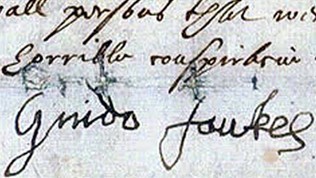 all persons that wer
horrible conspiracie
Guido fawkes